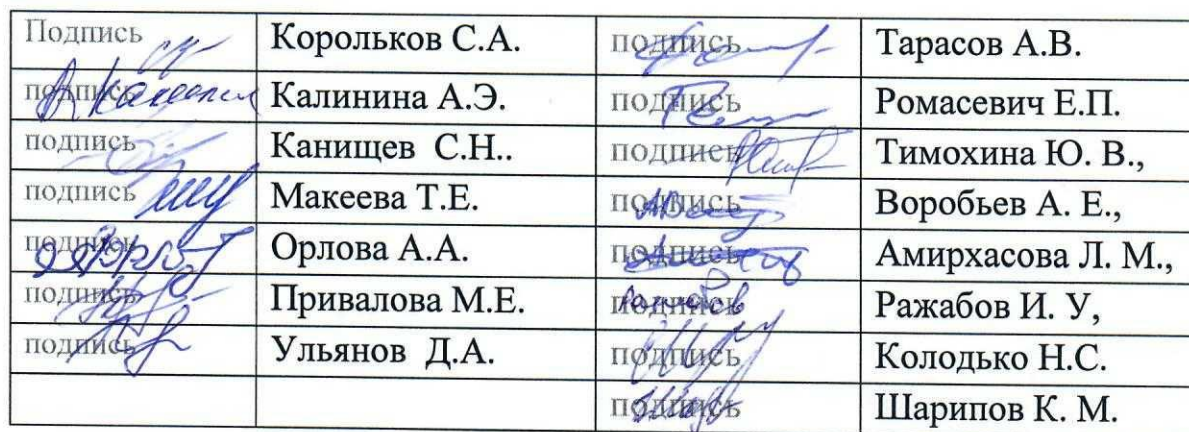 Подпись Корольков С.А. подпись Тарасов А.В.
подпись Калинина А.Э. подпись Ромасевич Е.П.
подпись Канищев С.Н.. подпись Тимохина Ю. В.,
подпись Макеева Т.Е. подпись Воробьев А. Е.,
подпись Орлова А.А. подпись Амирхасова Л. М.,
подпись Привалова М.Е. подпись Ражабов И. У,
подпись Ульянов Д.А. подпись Колодько Н.С.
подпись Шарипов К. М.